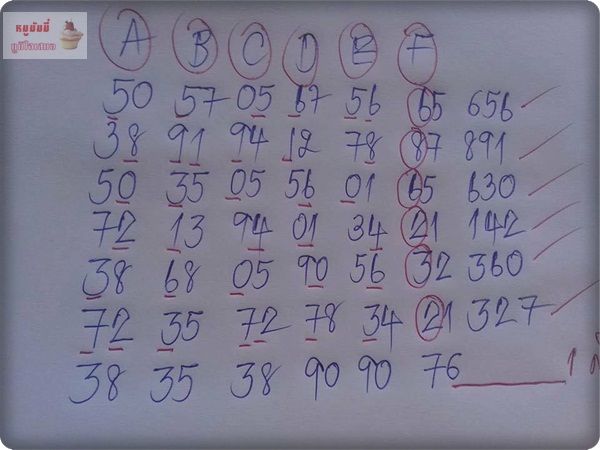 หมูมัมมี่
ภูมีใจเสนอ
A B C D E F
50 57 05 67 56 65 656
38 91 94 12 78 87 891
50 35 05 56 01 65 630
72 13 94 01 34 21 142
38 68 05 90 56 32 360
72 35 72 78 34 21 327
38 35 38 90 90 76 1